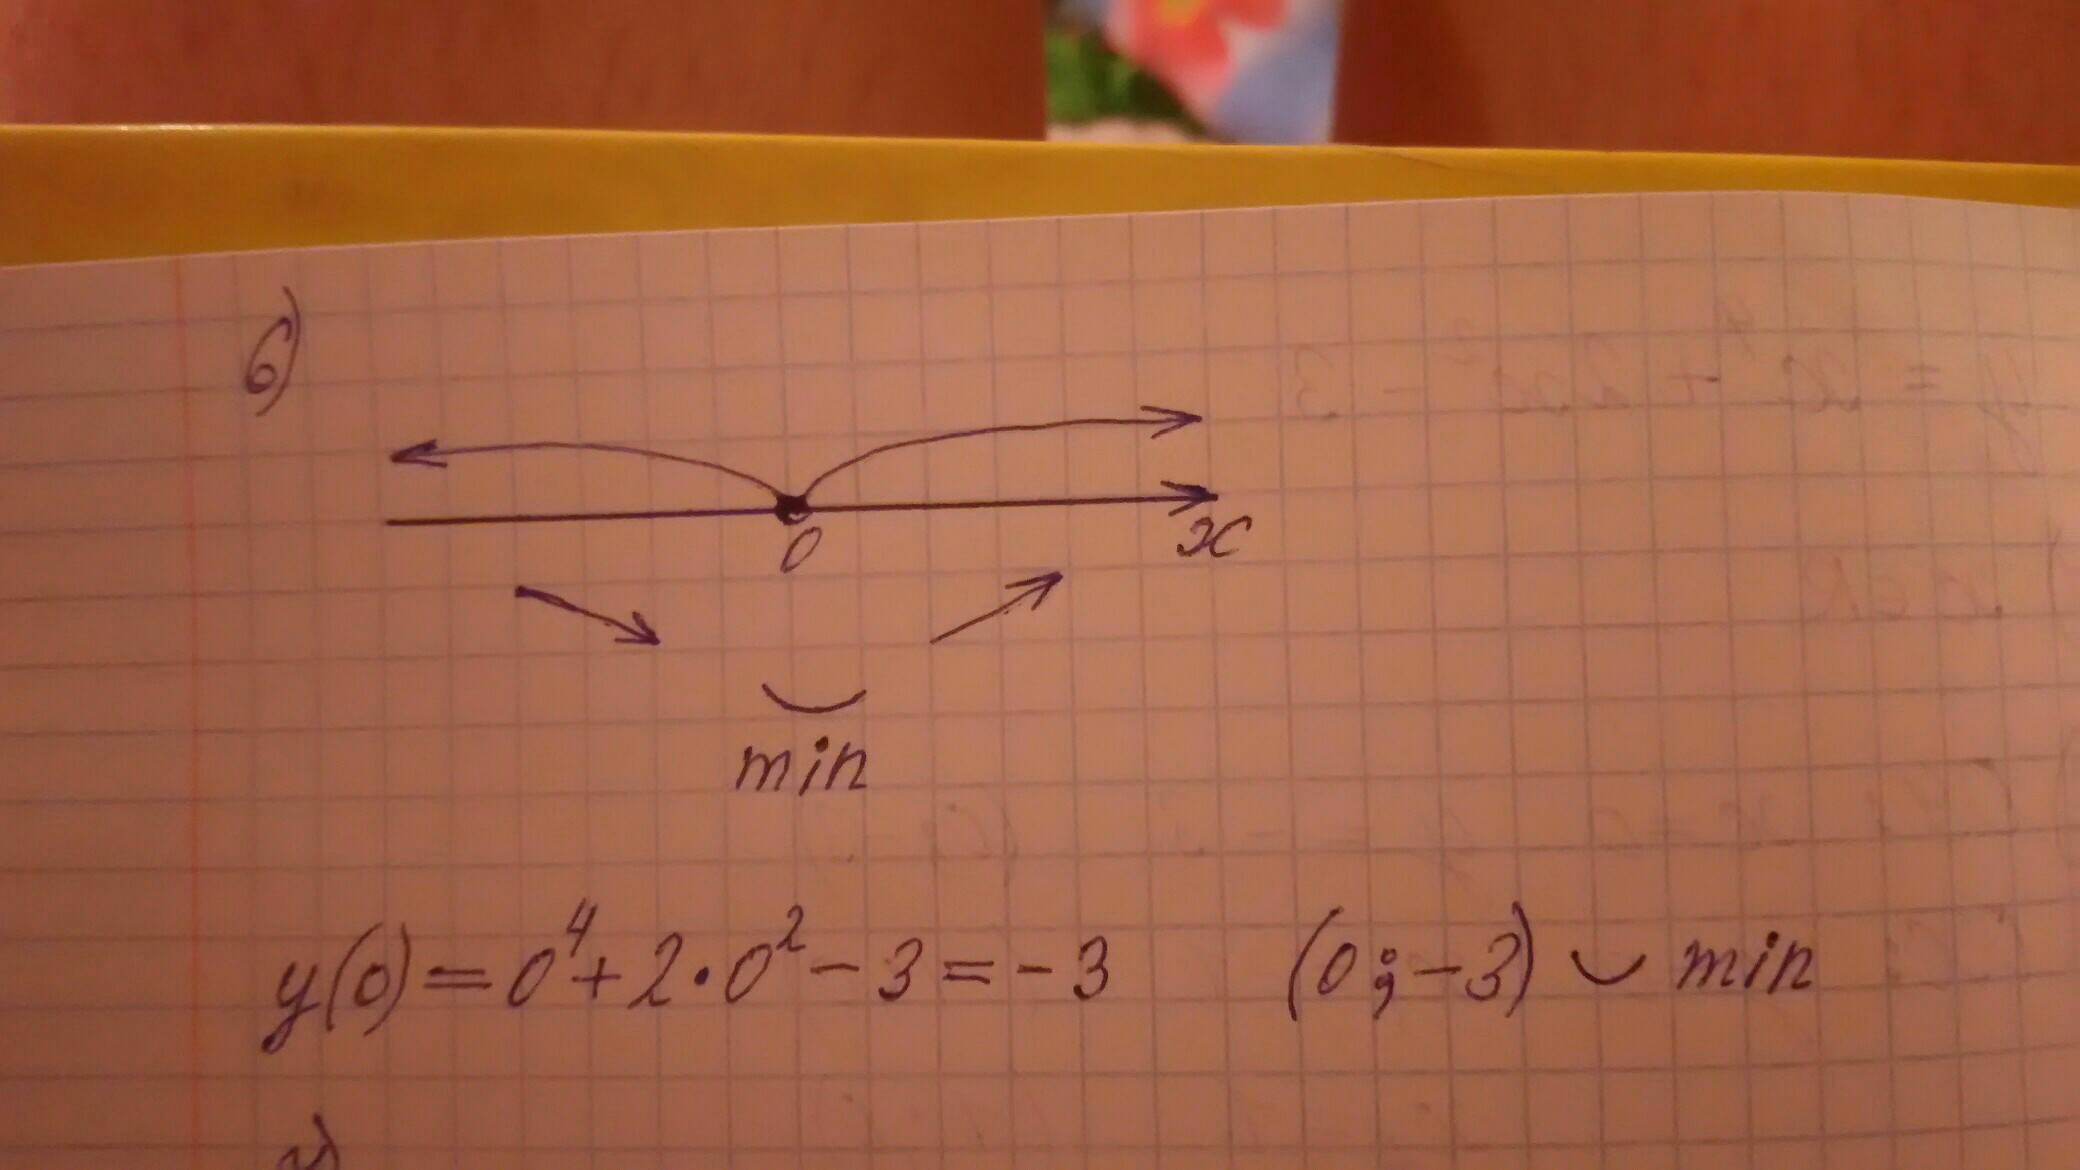 6)
0 x
min
y(0) = 0⁴ + 2 · 0² - 3 = -3 (0; -3) ◡ min